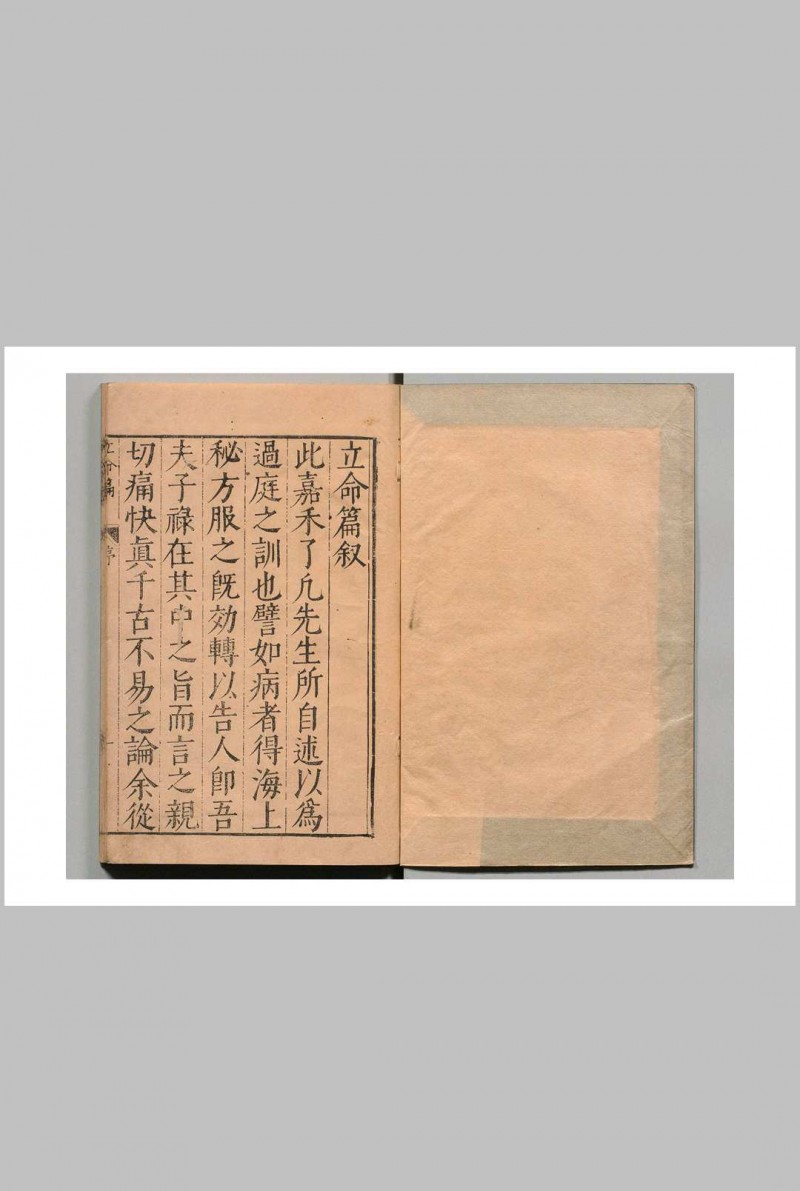 立命篇叙
此嘉禾了凡先生所自述以爲
過庭之訓也譬如病者得海上
秘方服之旣効轉以告人卽吾
夫子祿在其中之旨而言之親
切痛快眞千古不易之論余從
立命篇
序
一